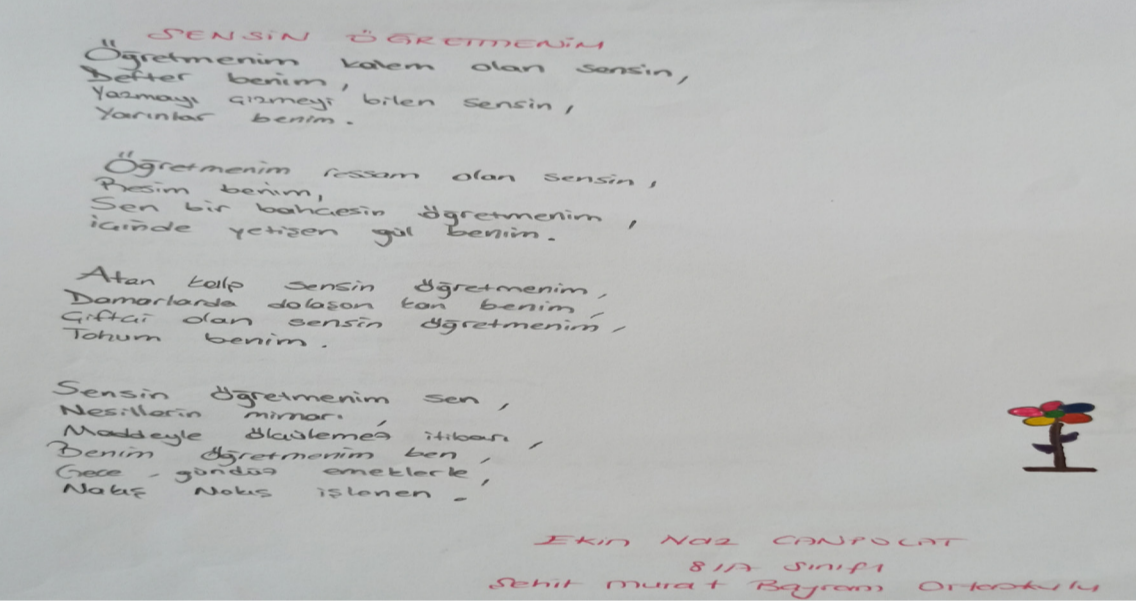 SENSİN ÖĞRETMENİM
Öğretmenim kalem olan sensin,
Defter benim,
Yazmayı çizmeyi bilen sensin,
Yarınlar benim.
Öğretmenim ressam olan sensin,
Resim benim,
Sen bir bahçesin öğretmenim,
içinde yetişen gül benim.
Atan kalp sensin öğretmenim,
Damarlarda dolaşan kan benim,
Çiftçi olan sensin öğretmenim,
Tohum benim.
Sensin öğretmenim sen,
Nesillerin mimarı,
Maddeyle ölçülemez itibarı,
Benim öğretmenim ben,
Gece, gündüz emeklerle,
Nakış Nakış işlenen.
Ekin Naz CANPOLAT
8/A Sınıfı
Şehit Murat Bayram Ortaokulu